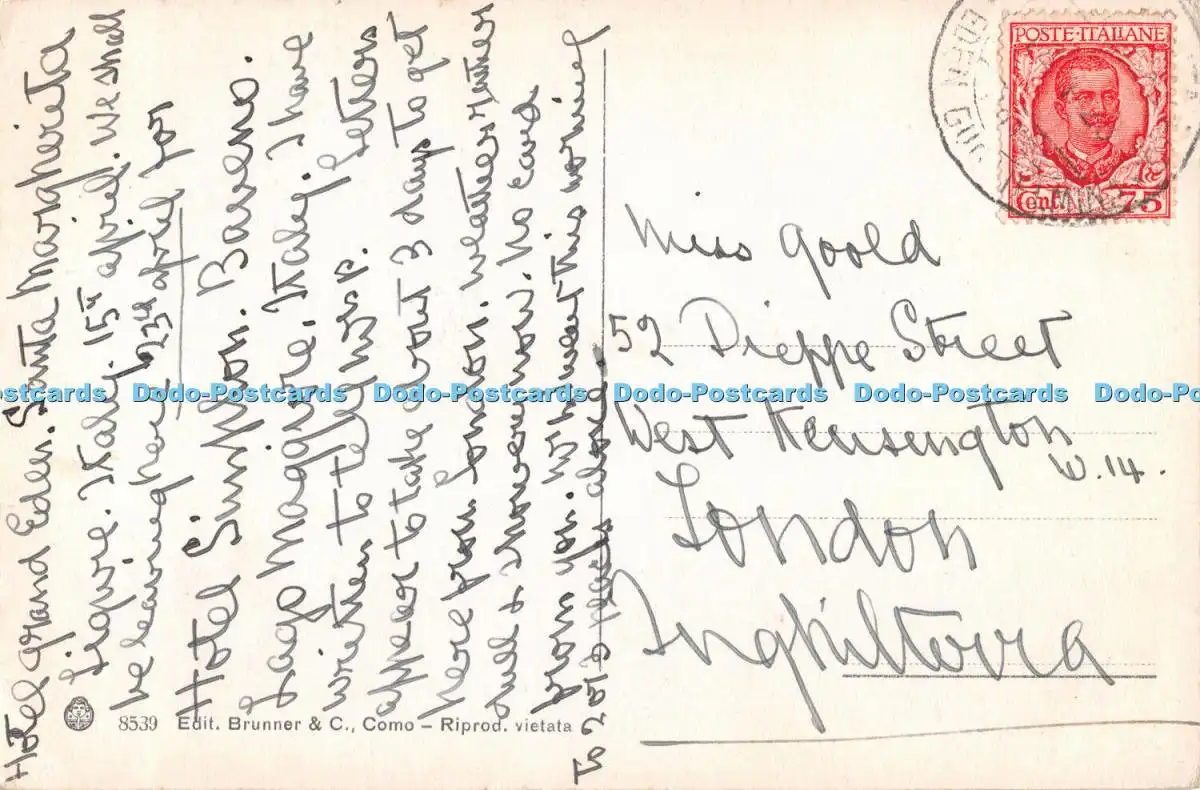 Hotel Grand Eden. Santa Margherita
Ligure. Italy. 15th April. We shall
be leaving here 23rd April for
Hotel Simplon. Baveno.
Lago Maggiore. Italy. I have
written to tell Mrs P. Letters
appear to take about 3 days to get
here from London. Weather rather
dull & showery now. No card
from you. Wh. went this morning
To 2 places above.
8539 Edit. Brunner & C., Como – Riprod. vietata
POSTE·ITALIANE
Cent. 75
Miss Goold
52 Dieppe Street
West Kensington
W.14.
London
Inghilterra
Dodo-Postcards Dodo-Postcards Dodo-Postcards Dodo-Postcards Dodo-Postcards Dodo